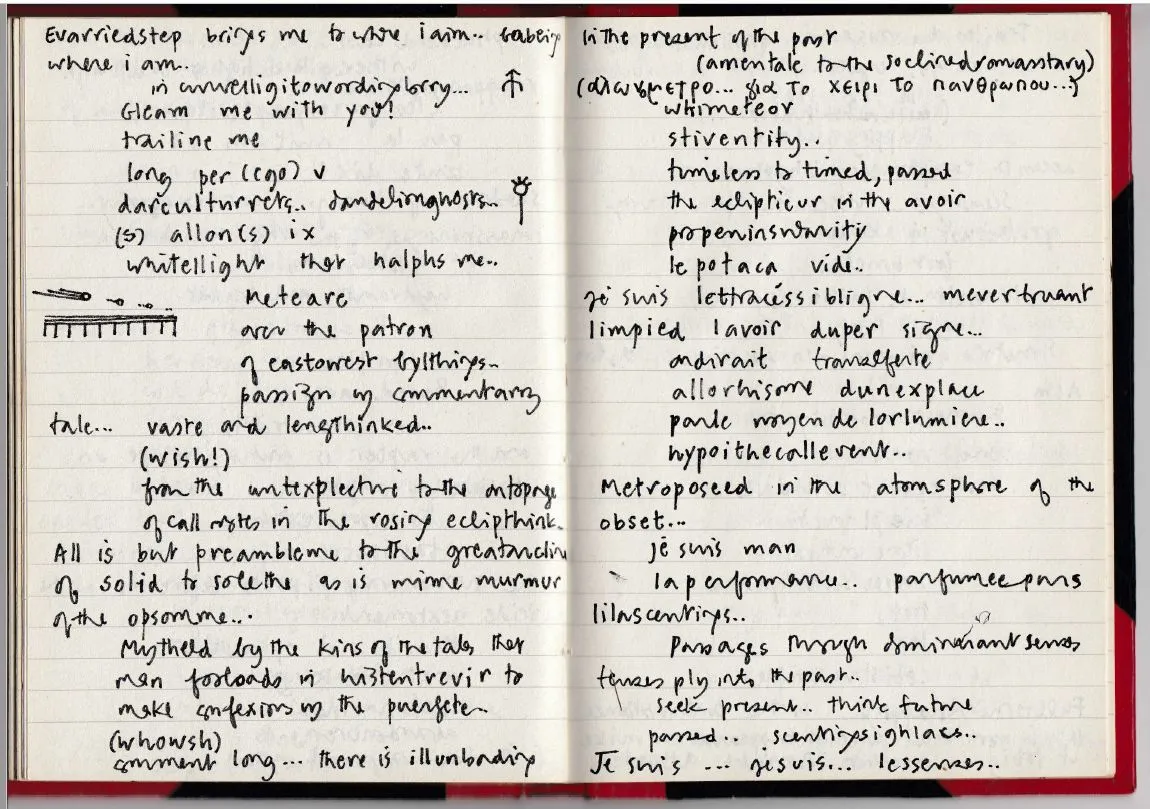 Evarriedstep brings me to where i aim.. babeing
where i am..
in unwelligitowordinglorry...
Gleam me with you!
trailine me
long per (ego) v
darculturrets.. dandelionghosts..
(s) allon(s) ix
whitellight that halphs me..
Meteare
over the patron
of eastowest bylthings..
passizn by commentarzy
tale... vaste and lengthinked..
(wish!)
from the untexplecture to the ontopage
of call notes in the rosing eclipthink.
All is but preambleme to the greatandlin
of solid to solethe as is mime murmur
of the opsomme...
Mytheld by the kins of the tales that
men forloads in histentrevir to
make confexions by the puerfete..
(whowsh)
comment long... there is illunboding
In the present of the past
(amentale to the soclinedromasstary)
για το χειρι το πανθρωπου...)
whimeteor
stiventity..
timeless to timed, passed
the eclipticur in the avoir
propeninsularity
le potaca vide..
je suis lettracessibligne... mevertruant
limpied lavoir duper signe...
ondirait transferte
allorhisome dunexplace
parle moyen de lorlumiere..
hypoithecallevent..
Metroposeed in the atomsphere of the
obset...
je suis man
la performance... parfumee pans
lilascentings..
Passages through senses
tenses ply into the past..
seek present.. think future
passed.. scentingsighlass..
Je suis ... jesuis... lessenses..